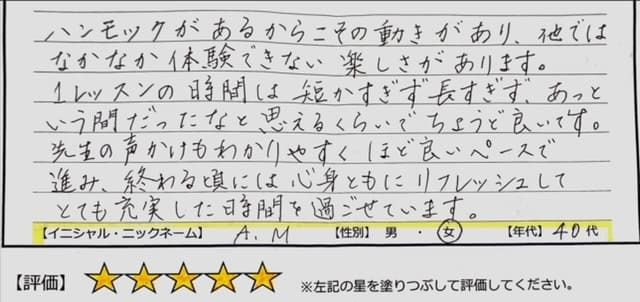 ハンモックがあるからこその動きがあり、他では
なかなか体験できない楽しさがあります。
1レッスンの時間は短かすぎず長すぎず、あっと
いう間だったなと思えるくらいでちょうど良いです。
先生の声かけもわかりやすくほど良いペースで
進み、終わる頃には心身ともにリフレッシュして
とても充実した時間を過ごせています。
【イニシャル・ニックネーム】 A.M 【性別】 男 ・ 女 【年代】 40代
【評価】 ★★★★★ ※左記の星を塗りつぶして評価してください。